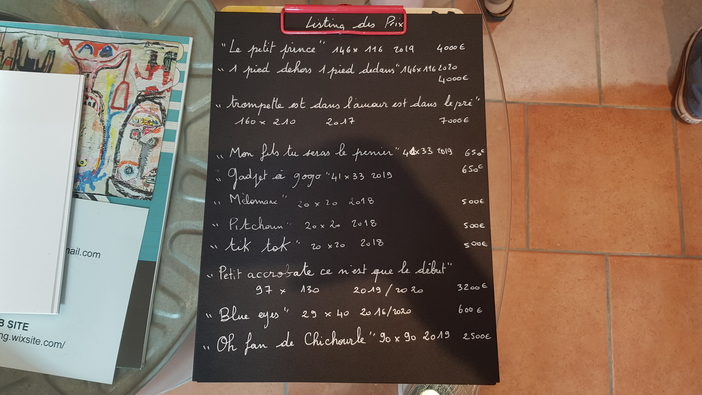 Listing des Prix
"Le petit prince" 146 x 116 2019 4000€
"1 pied dehors 1 pied dedans" 146 x 116 2020
4000€
"trompette est dans l'amour est dans le pré"
160 x 210 2017 7000€
"Mon fils tu seras le premier" 41x33 2019 650€
"Gadjet è gogo" 41 x 33 2019 650€
"Mélomane" 20 x 20 2018 500€
"Pitchoun" 20 x 20 2018 500€
"tik tok" 20 x 20 2018 500€
"Petit accrobate ce n'est que le début"
97 x 130 2019/2020 3200€
"Blue eyes" 29 x 40 2016/2020 600€
"Oh fan de Chichourle" 90 x 90 2019 2500€
mail.com
B SITE
ng.wixsite.com/